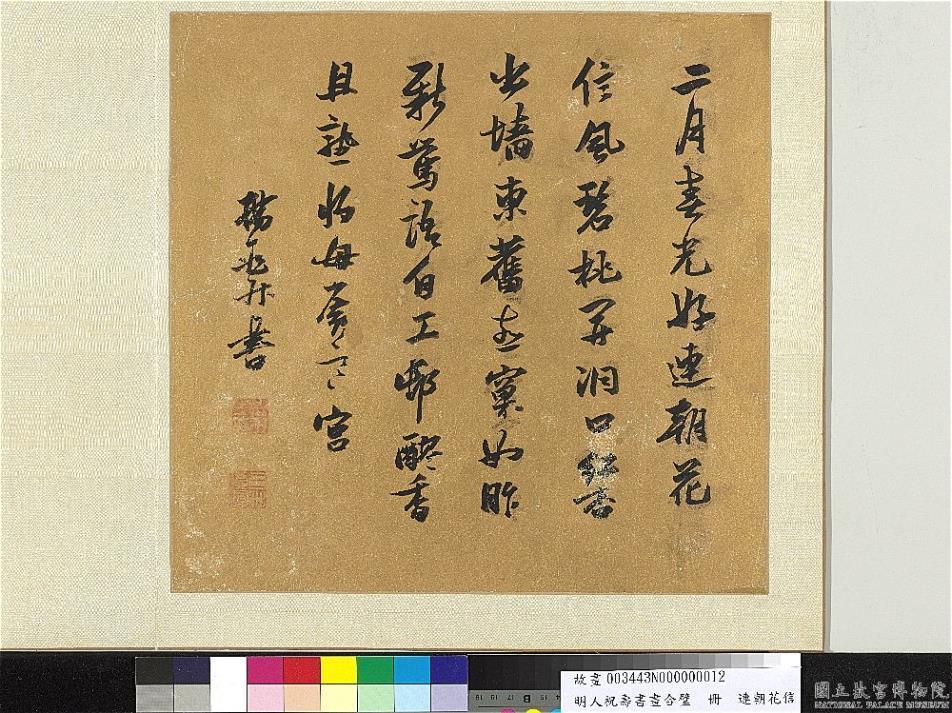 二月春光好連朝花
信風碧桃開洞口紅杏
出墻東舊燕窠如昨
新鶯語自工邨醪香
且熟將毋宮
楊兆升書
故畫 003443N000000012
明人祝壽書畫合璧 冊 連朝花信
國立故宮博物院
NATIONAL PALACE MUSEUM